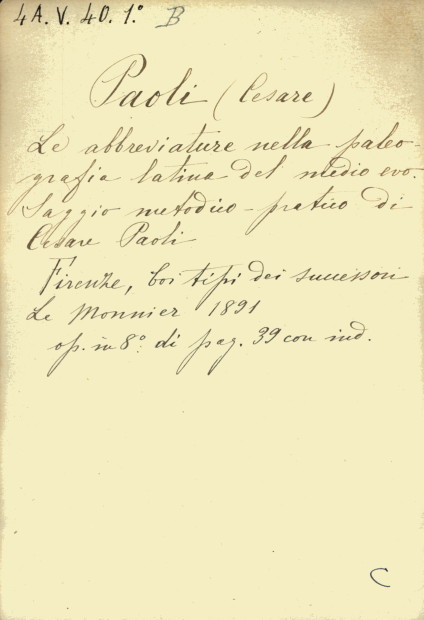 4A. V. 40. 1.° B
Paoli (Cesare)
Le abbreviature nella paleo-
grafia latina del medio evo.
Saggio metodico-pratico di
Cesare Paoli
Firenze, Coi tipi dei successori
Le Monnier 1891
op. in 8.° di pag. 39 con ind.
C